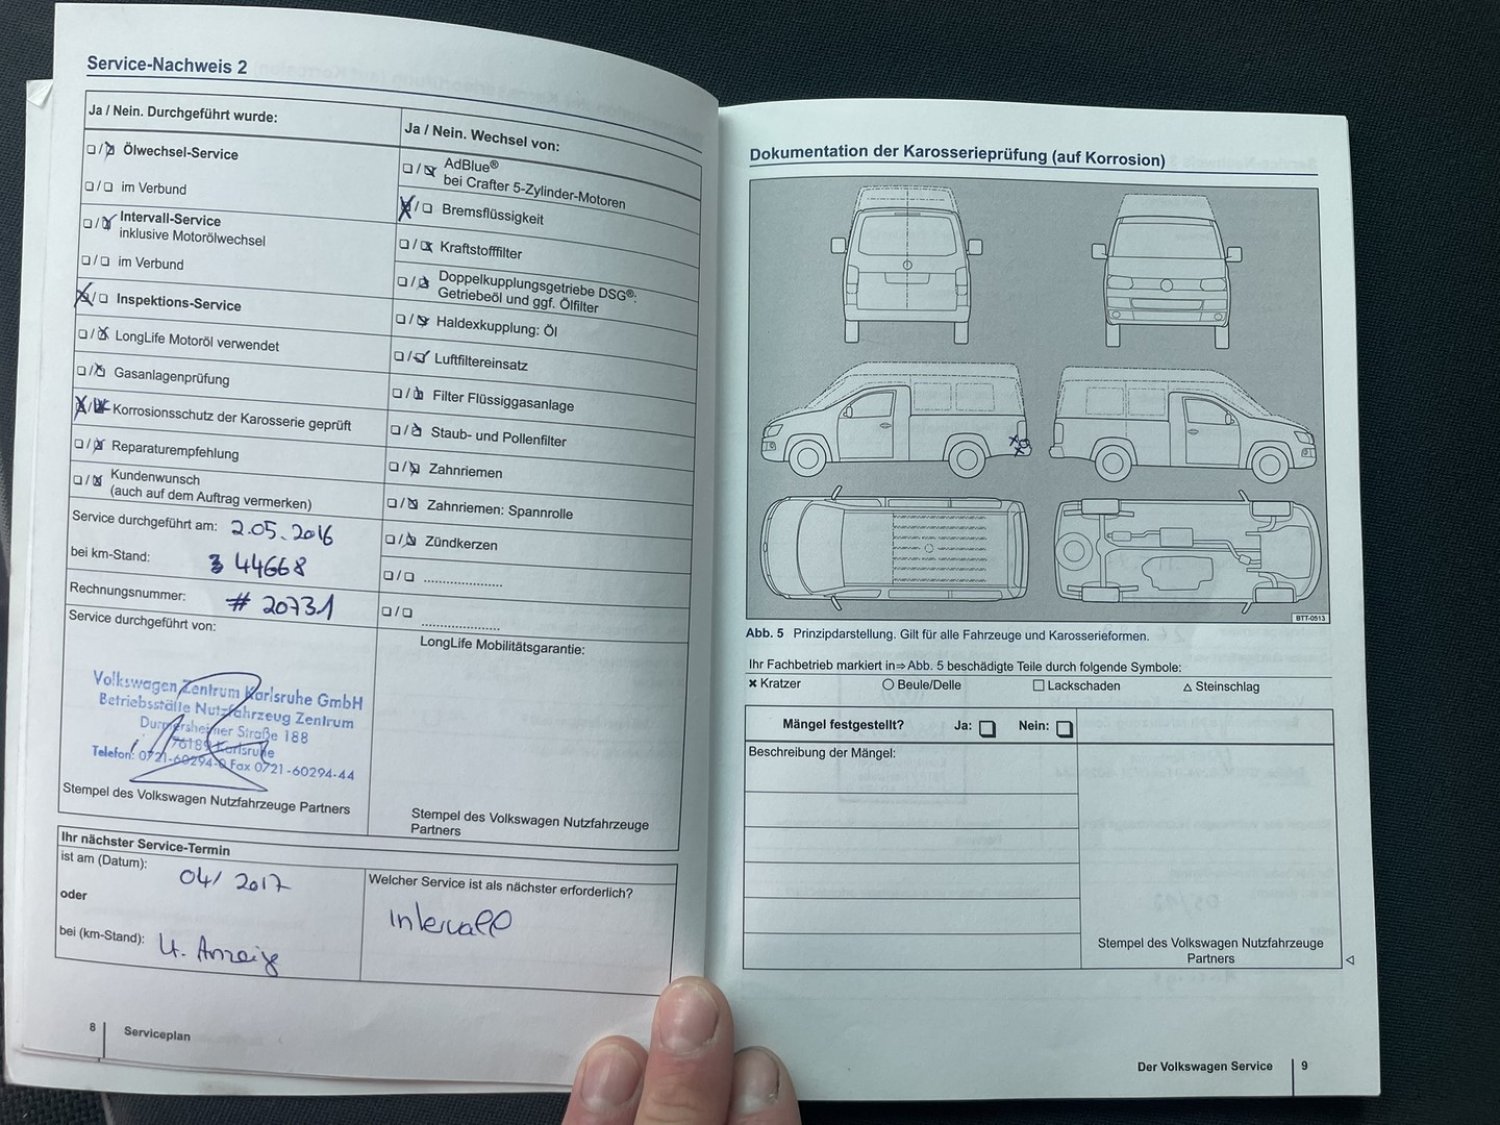 Service-Nachweis 2
Ja / Nein. Durchgeführt wurde:
Ölwechsel-Service
im Verbund
Intervall-Service
inklusive Motorölwechsel
im Verbund
Inspektions-Service
LongLife Motoröl verwendet
Gasanlagenprüfung
Korrosionsschutz der Karosserie geprüft
Reparaturempfehlung
Kundenwunsch
(auch auf dem Auftrag vermerken)
Service durchgeführt am: 2.05.2016
bei km-Stand: 44668
Rechnungsnummer: # 20731
Service durchgeführt von:
Volkswagen Zentrum Karlsruhe GmbH
Betriebsställe Nutzfahrzeug Zentrum
Durmersheimer Straße 188
76189 Karlsruhe
Telefon: 0721-60294-0 Fax 0721-60294-44
Stempel des Volkswagen Nutzfahrzeuge Partners
Ja / Nein. Wechsel von:
AdBlue®
bei Crafter 5-Zylinder-Motoren
Bremsflüssigkeit
Kraftstofffilter
Doppelkupplungsgetriebe DSG®:
Getriebeöl und ggf. Ölfilter
Haldexkupplung: Öl
Luftfiltereinsatz
Filter Flüssiggasanlage
Staub- und Pollenfilter
Zahnriemen
Zahnriemen: Spannrolle
Zündkerzen
LongLife Mobilitätsgarantie:
Stempel des Volkswagen Nutzfahrzeuge
Partners
Ihr nächster Service-Termin
ist am (Datum): 04/2017
oder
bei (km-Stand): lt. Anzeige
Welcher Service ist als nächster erforderlich?
Intervall
8 Serviceplan
Dokumentation der Karosserieprüfung (auf Korrosion)
BTT-0513
Abb. 5 Prinzipdarstellung. Gilt für alle Fahrzeuge und Karosserieformen.
Ihr Fachbetrieb markiert in⇒Abb. 5 beschädigte Teile durch folgende Symbole:
× Kratzer ○ Beule/Delle □ Lackschaden △ Steinschlag
Mängel festgestellt? Ja: Nein:
Beschreibung der Mängel:
Stempel des Volkswagen Nutzfahrzeuge
Partners
Der Volkswagen Service 9